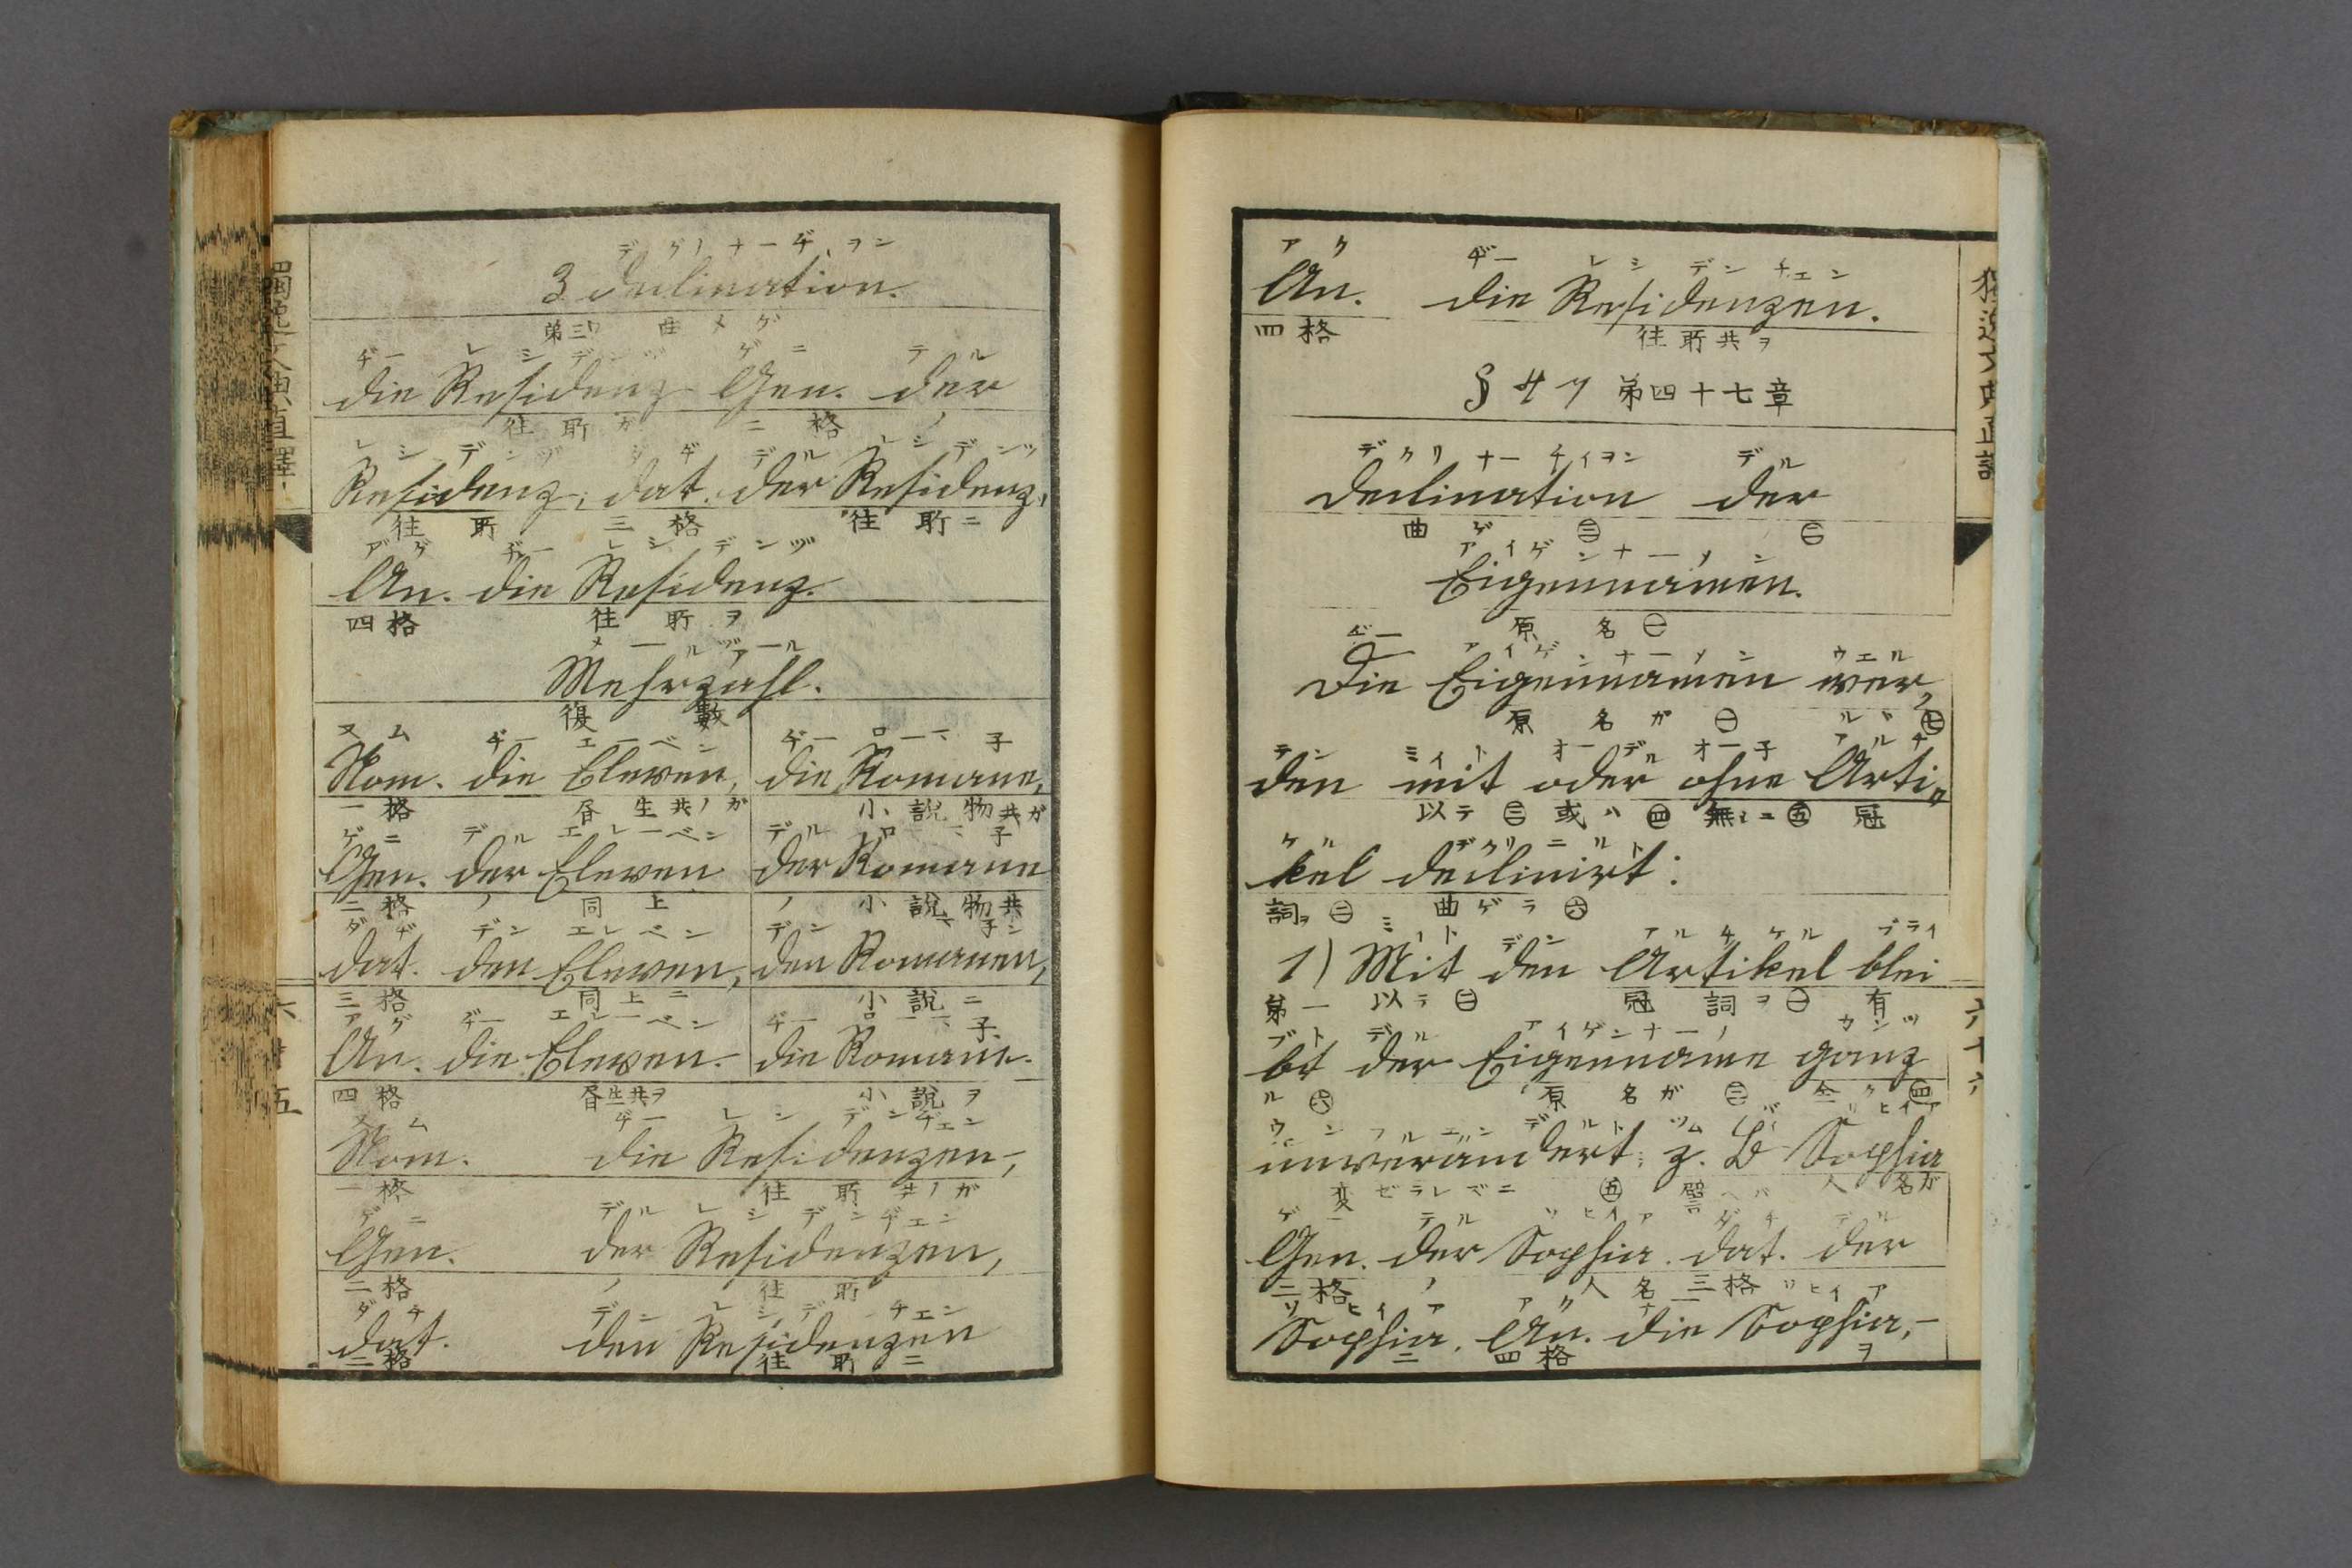 デクリナーヂヨン
3 Declination.
第三ノ 曲メゲ
ヂー レシデンツ ゲニ デル
die Residenz Gen. der
往所ガ 二格 ノ
レシデンツ ダチ デル レシデンツ
Residenz, Dat. der Residenz,
往所 三格 往所ニ
ヂー レシデンツ
An. die Residenz.
四格 往所ヲ
メールツアール
Mehrzahl.
復數
ヌム ヂー ヂー ロ
Nom. die Eleven, die Romane,
一格 生共ノガ 小說物共ガ
ゲニ デル エレーベン デル
Gen. der Eleven der Romane
二格 ノ 同上 ノ 小說物共
ダチ デン エレベン デン
Dat. den Eleven, den Romanen,
三格 同上ニ 小說ニ
ヂー エレーベン ヂー
An. die Eleven. die Romane.
四格 生共ヲ 小說ヲ
ヌム ヂー
Nom. die Residenzen,
一格 往所共ノガ
ゲニ デル レシデンヂエン
Gen. der Residenzen,
二格 ノ 往所
ダチ デン レシデンチエン
Dat. den Residenzen
三格 往所ニ
六十五
アク ヂー レシデンチエン
An. die Residenzen.
四格 往所共ヲ
§ 47 第四十七章
デクリナーチイヨン デル
Declination der
曲ゲ ㊂ ㊁
アイゲンナーメン
Eigennamen.
原名 ㊀
ヂー アイゲンナーメン ウエル
Die Eigennamen wer-
原名ガ ㊀ ルヽ ㊆
デン ミイト オーデル オー子 アルチ
den mit oder ohne Arti-
以テ ㊂ 或ハ ㊃ 無シニ ㊄ 冠
ケル デクリニルト
kel declinirt:
詞ヲ ㊁ 曲ゲラ ㊅
ミイト デン アルチケル ブライ
1) Mit den Artikel blei
第一 以テ ㊁ 冠詞ヲ ㊀ 有
ブト デル アイゲンナーメ カンツ
bt der Eigenname ganz
ル ㊅ 原名ガ ㊂ 全ク ㊃
ウンフルエンデルト ツム
unverändert; z. B Sophia
変ゼラレズニ ㊄ 譬ヘバ 人名ガ
ゲニ デル ソヒイア ダチ デル
Gen. der Sophia. Dat. der
二格 ノ 人名 三格
ソヒイア
Sophia. An. die Sophia,
ニ 四格 ヲ
六十六